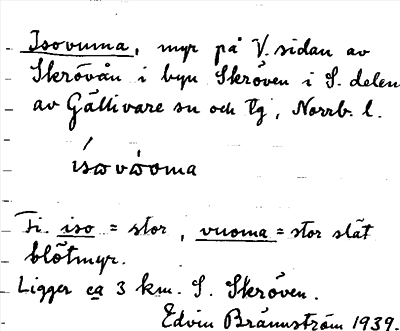 Isovuoma, myr på V. sidan av
Skrövån i byn Skröven i S. delen
av Gällivare sn och tg, Norrb. l.
ísωvώoma
Fi. iso = stor, vuoma = stor slät
blötmyr.
Ligger ca 3 km. S. Skröven.
Edvin Brännström 1939.